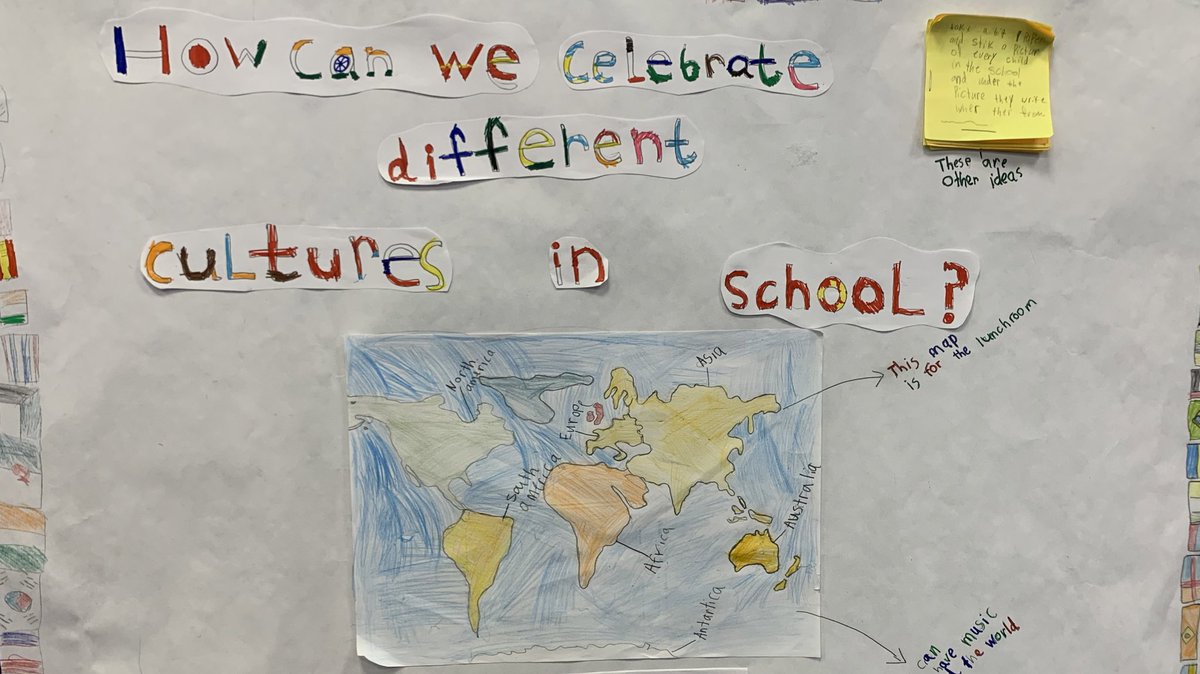 How can we celebrate
different
cultures in school?
and stick a Pictur
of every child
in the school
and under the
Picture they write
wher ther from
These are
Other ideas
This map
is for the lunchroom
North
america
Asia
Europe
South
america
Africa
Australia
Antartica
can
have music
the world